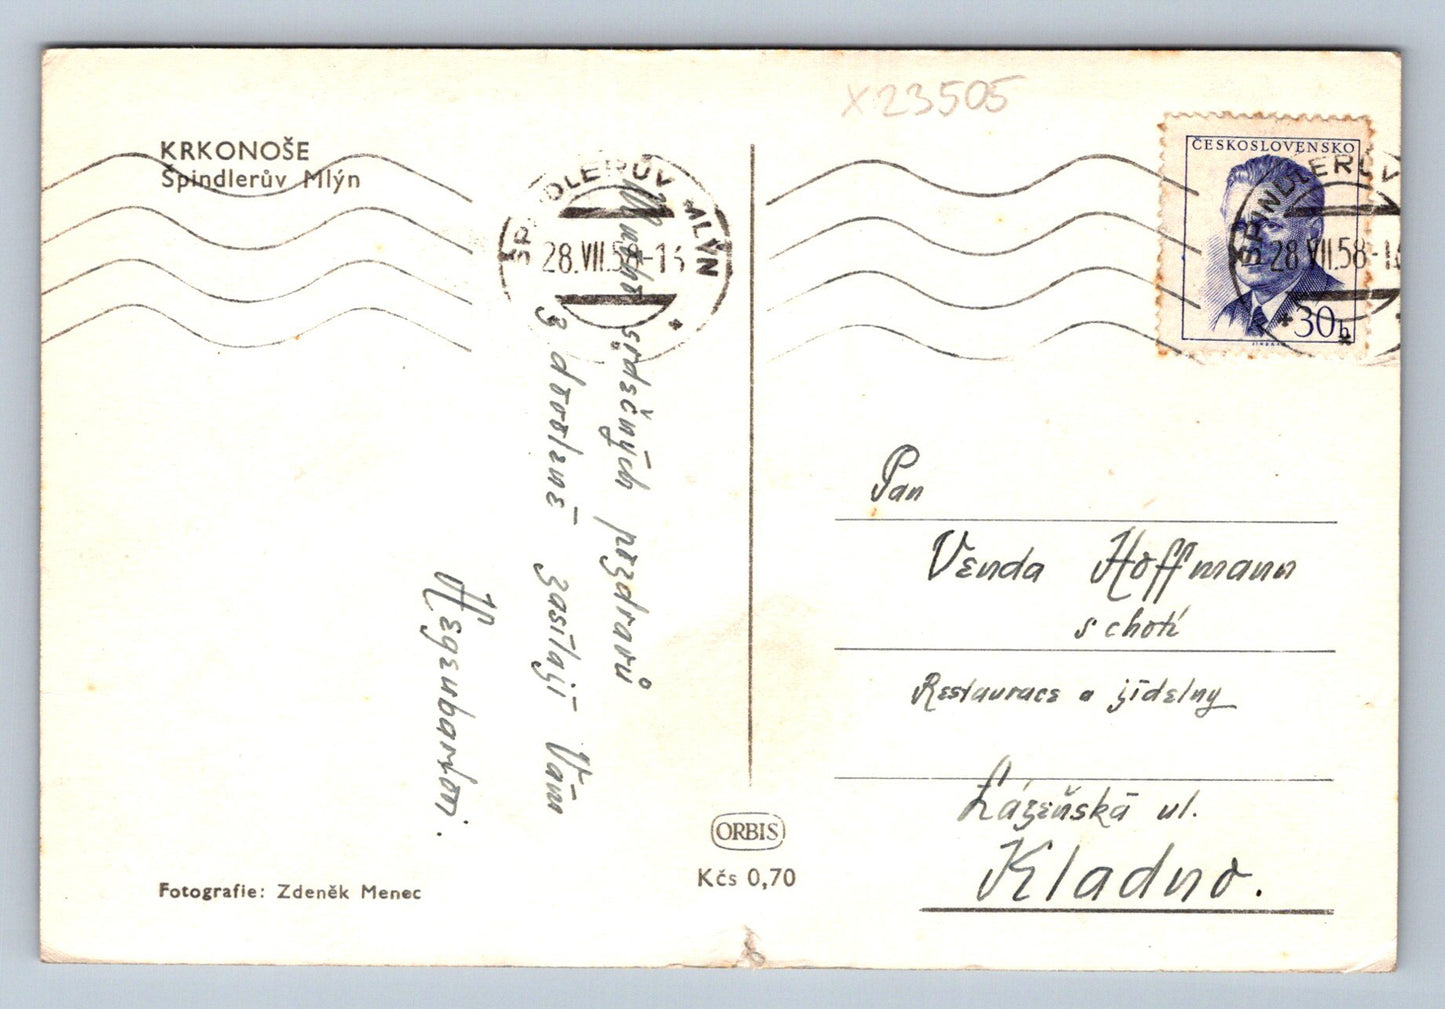 X23505
KRKONOŠE
Špindlerův Mlýn
ŠPINDLERŮV MLÝN
28.VII.58-13
ČESKOSLOVENSKO
30h
ŠPINDLERŮV
28.VII.58-1
Mnoho srdečných pozdravů
z dovolené zasílají Vám
Hegenbartovi.
Pan
Venda Hoffmann
s chotí
Restaurace a jídelny
Lázeňská ul.
Kladno.
ORBIS
Kčs 0,70
Fotografie: Zdeněk Menec